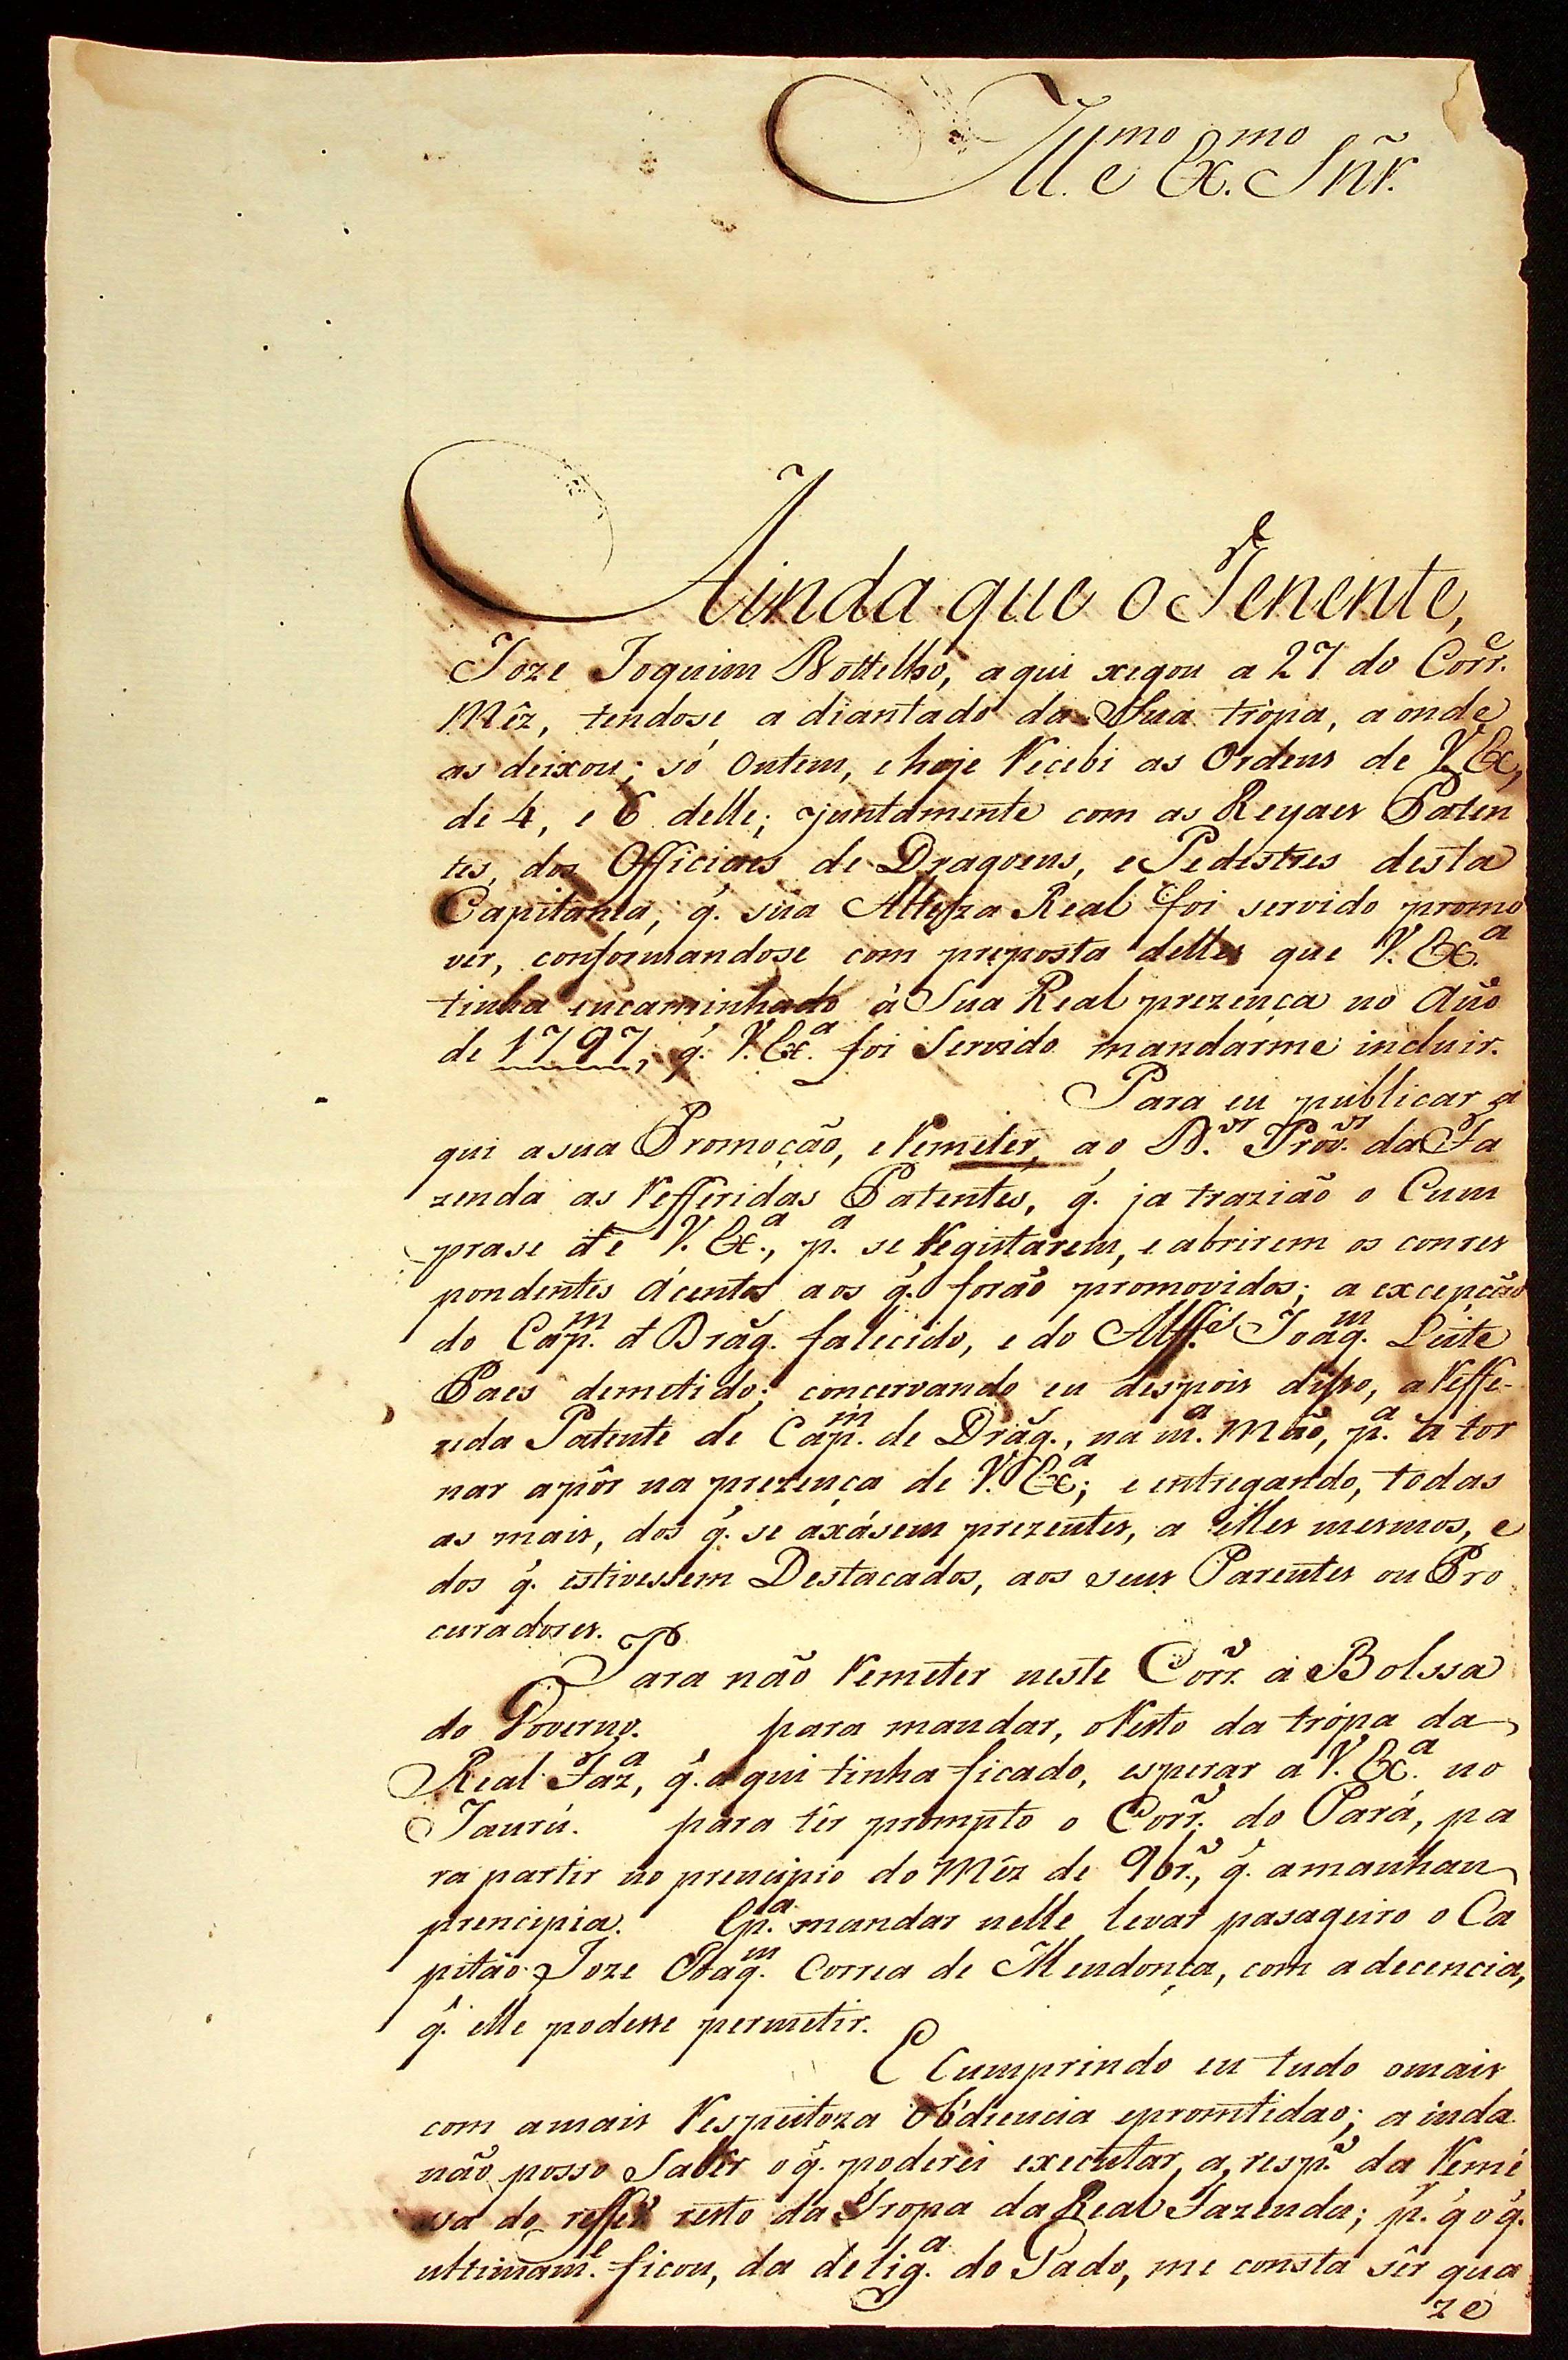 Ill.mo e Ex.mo Snr.
Ainda que o Tenente,
Joze Joquim Bottelho, aqui xegou a 27 do Corr.e
Mêz, tendose adiantado da Sua trópa, aonde
as deixou; só ontem, e hoje recebi as Ordens de V. Ex,
de 4, e 6 delle; juntamente com as Reyaes Paten
tes, dos Officiaes de Dragoens, e Pedestres desta
Capitania, q. sua Alteza Real foi servido promo
ver, conformandose com preposta delles que V. Ex.a
tinha encaminhado à Sua Real prezença no Año
de 1797, q. V. Ex.a foi Servido mandarme incluir.
Para eu publicar a
qui a sua Promoção, e remeter, ao D.or Prov.or da Fa
zenda as refferidas Patentes, q. ja trazião o Cum
prase de V. Ex.a, p.a se registarem, e abrirem os conres
pondentes àcentos aos q. forão promovidos; a excepção
do Cap.m d Drag. falecido, e do Alff.es Joaq.m Leite
Paes demetido; concervando eu despois disso, a reffe-
rida Patente de Cap.m de Drag., na m.a Mão, p.a a tor
nar apôr na prezença de V. Ex.a; e entregando, todas
as mais, dos q. se áxásem prezentes, a elles mesmos, e
dos q. estivessem Destacados, aos seus Parentes ou Pro
curadores.
Para não remeter neste Corr. a Bolssa
do Governo. para mandar, o resto da trópa da
Real Faz.a, q. aqui tinha ficado, esperar a V. Ex.a no
Jaurú. para têr prompto o Corr. do Pará, pa
ra partir no prencipio do Mêz de 9br., q. amanhan
prencipia. E p.a mandar nelle levar pasageiro o Ca
pitão Joze Joaq.m Correa de Mendonça, com a decencia,
q. elle podesse permetir.
E Cumprindo eu tudo omais
com amais respeitoza obdiencia epromtidão; ainda
não posso Saber o q. poderei executar, a resp.o da remé
sa do reffer. resto da Tropa da Real Fazenda; p.r q o q.
ultimam.e ficou, da delig.a do Gado, me consta sêr qua
ze